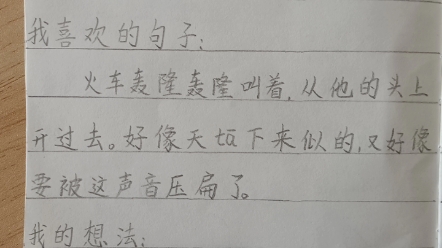 我喜欢的句子：
火车轰隆轰隆叫着，从他的头上
开过去。好像天tā下来似的，又好像
要被这声音压扁了。
我的想法：